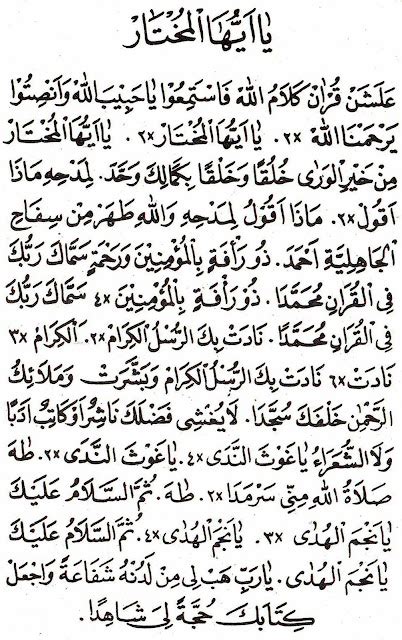 يَا اَيُّهَا الْمُخْتَارْ
عَلَشَنْ قُرْاٰنْ كَلَامُ اللهْ فَاسْتَمِعُوْا يَاحَبِيْبَ اللهْ وَاَنْصِتُوْا
يَرْحَمْنَا اللهْ ×٢. يَا اَيُّهَا الْمُخْتَارْ ×٢. يَا اَيُّهَا الْمُخْتَارْ
مِنْ خَيْرِ الْوَرٰى خُلُقًا وَخَلْقًا بِكَمَالِكَ وَحَّدَ. لِمَدْحِهِ مَاذَا
اَقُولُ ×٢. مَاذَا اَقُوْلُ لِمَدْحِهِ وَاللهِ طَهَّرَ مِنْ سِفَاحِ
الْجَاهِلِيَّةِ اَحْمَدَ. ذُوْرَأْفَةٍ بِالْمُؤْمِنِيْنَ وَرَحْمَةٍ سَمَّاكَ رَبُّكَ
فِى الْقُرَانِ مُحَمَّدًا. ذُوْرَأْفَةٍ بِالْمُؤْمِنِيْنَ ×٤ سَمَّاكَ رَبُّكَ
فِى الْقُرَانِ مُحَمَّدًا. نَادَتْ بِكَ الرُّسُلُ الْكِرَامْ ×٢. اَلْكِرَامْ ×٣
نَادَتْ ×٦ نَادَتْ بِكَ الرُّسُلُ الْكِرَامُ وَبَشَّرَتْ وَمَلَائِكُ
الرَّحْمٰنِ خَلْفَكَ سُجَّدًا. لَايُغْشٰى فَضْلَكَ نَاشِرٌ اَوْكَاتِبٌ اَدَبًا
وَلَا الشُّعَرَاءُ يَاغَوْثَ النَّدَى ×٤. يَاغَوْثَ النَّدَى ×٢. طٰهَ
صَلَاةُ اللهِ مِنِّى سَرْمَدَا ×٢. طٰهَ. ثُمَّ السَّلَامُ عَلَيْكَ
يَانَجْمَ الْهُدٰى ×٣. يَانَجْمَ الْهُدٰى ×٤. ثُمَّ السَّلَامُ عَلَيْكَ
يَانَجْمَ الْهُدٰى. يَارَبِّ هَبْ لِى مِنْ لَدُنْهُ شَفَاعَةً وَاجْعَلْ
كِتَابَكَ حُجَّةً لِى شَاهِدًا.